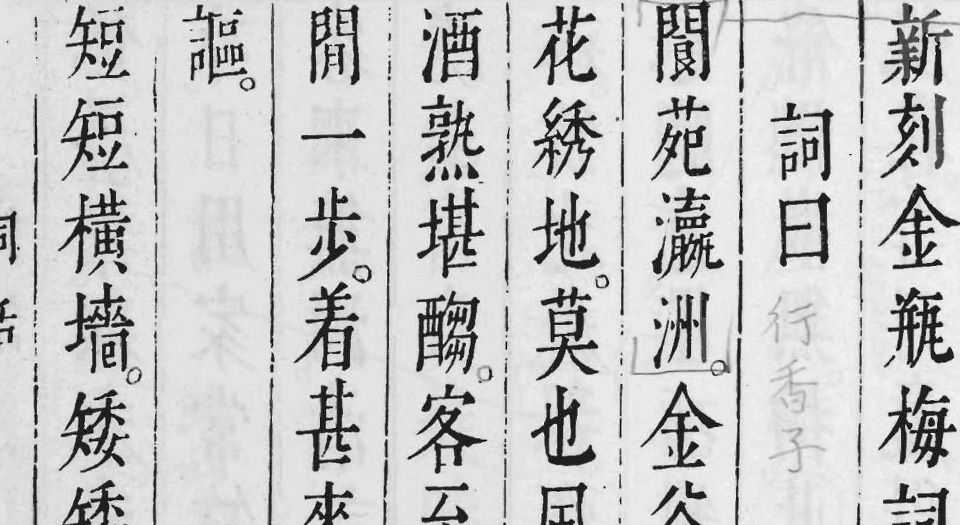 新刻金瓶梅詞
詞曰 行香子
閬苑瀛洲。金谷
花綉地。莫也風
酒熟堪䣯。客至
閒一步。着甚來
謳。
短短橫墻。矮矮
詞話